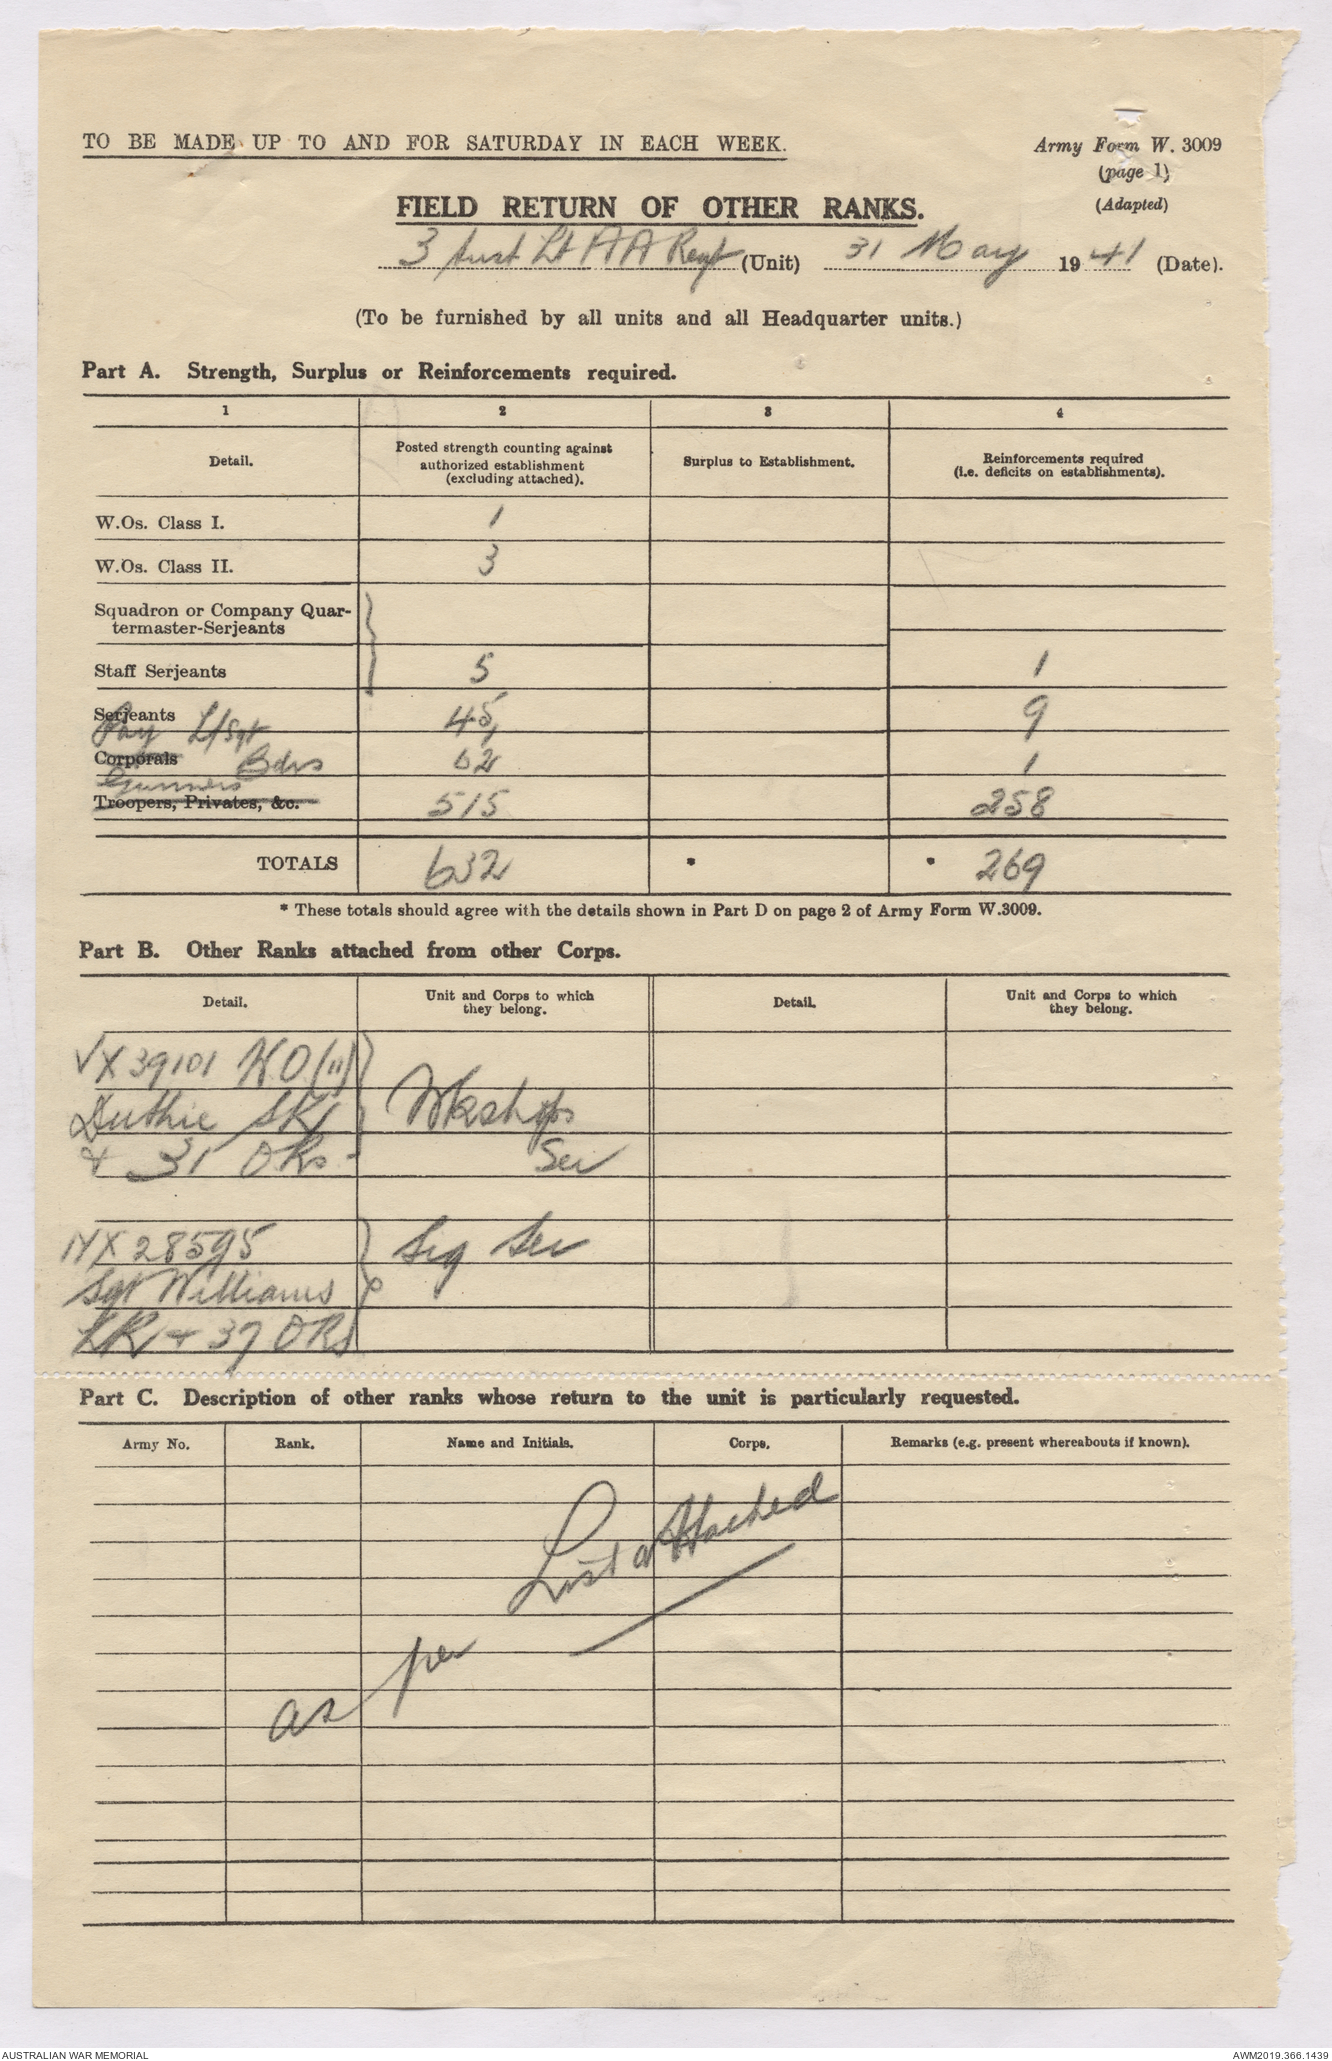 TO BE MADE UP TO AND FOR SATURDAY IN EACH WEEK.
Army Form W. 3009
(page 1)
(Adapted)
FIELD RETURN OF OTHER RANKS.
3 Aust Lt AA Regt (Unit) 31 May 1941 (Date).
(To be furnished by all units and all Headquarter units.)
Part A. Strength, Surplus or Reinforcements required.
1 2 3 4
Detail. Posted strength counting against authorized establishment (excluding attached). Surplus to Establishment. Reinforcements required (i.e. deficits on establishments).
W.Os. Class I. 1
W.Os. Class II. 3
Squadron or Company Quar-
termaster-Serjeants
Staff Serjeants 5 1
Serjeants 45 9
L/Sgt
Corporals Bdrs 62 1
Gunners
Troopers, Privates, &c. 515 258
TOTALS 632 * * 269
* These totals should agree with the details shown in Part D on page 2 of Army Form W.3009.
Part B. Other Ranks attached from other Corps.
Detail. Unit and Corps to which they belong. Detail. Unit and Corps to which they belong.
VX39101 WO(II)
Duthie SK Wkshops
& 31 ORs Sec
NX28595 Sig Sec
Sgt Williams
LR & 37 ORs
Part C. Description of other ranks whose return to the unit is particularly requested.
Army No. Rank. Name and Initials. Corps. Remarks (e.g. present whereabouts if known).
as per List attached
AUSTRALIAN WAR MEMORIAL
AWM2019.366.1439